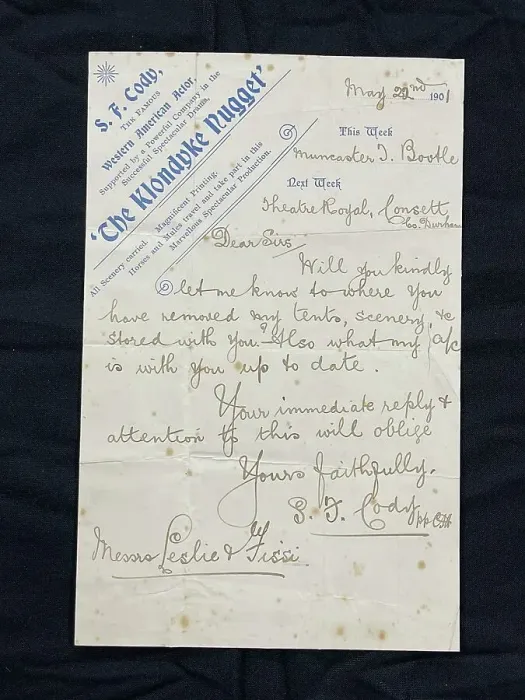 S. F. Cody,
THE FAMOUS
Western American Actor,
Supported by a Powerful Company in the
Successful Spectacular Drama,
'The Klondyke Nugget'
All Scenery carried. Magnificent Printing.
Horses and Mules travel and take part in this
Marvellous Spectacular Production.
May 22nd 1901
This Week
Muncaster T. Bootle
Next Week
Theatre Royal, Consett,
Co. Durham
Dear Sirs
Will you kindly
let me know to where you
have removed my tents, scenery, &c
stored with you? Also what my a/c
is with you up to date.
Your immediate reply &
attention to this will oblige
Yours faithfully.
S. F. Cody
pp
Messrs Leslie &